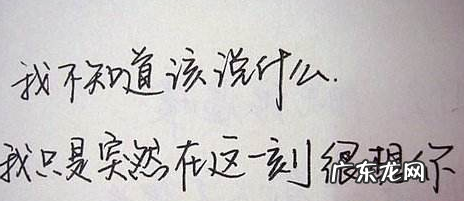 我不知道该说什么.
我只是突然在这一刻很想你
广东龙网